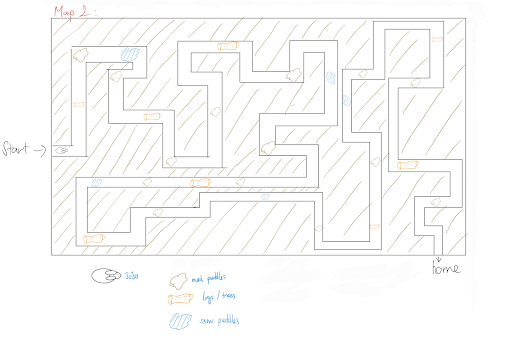 Map 2:
Start →
Home
JoJo
mud puddles
logs / trees
snow puddles